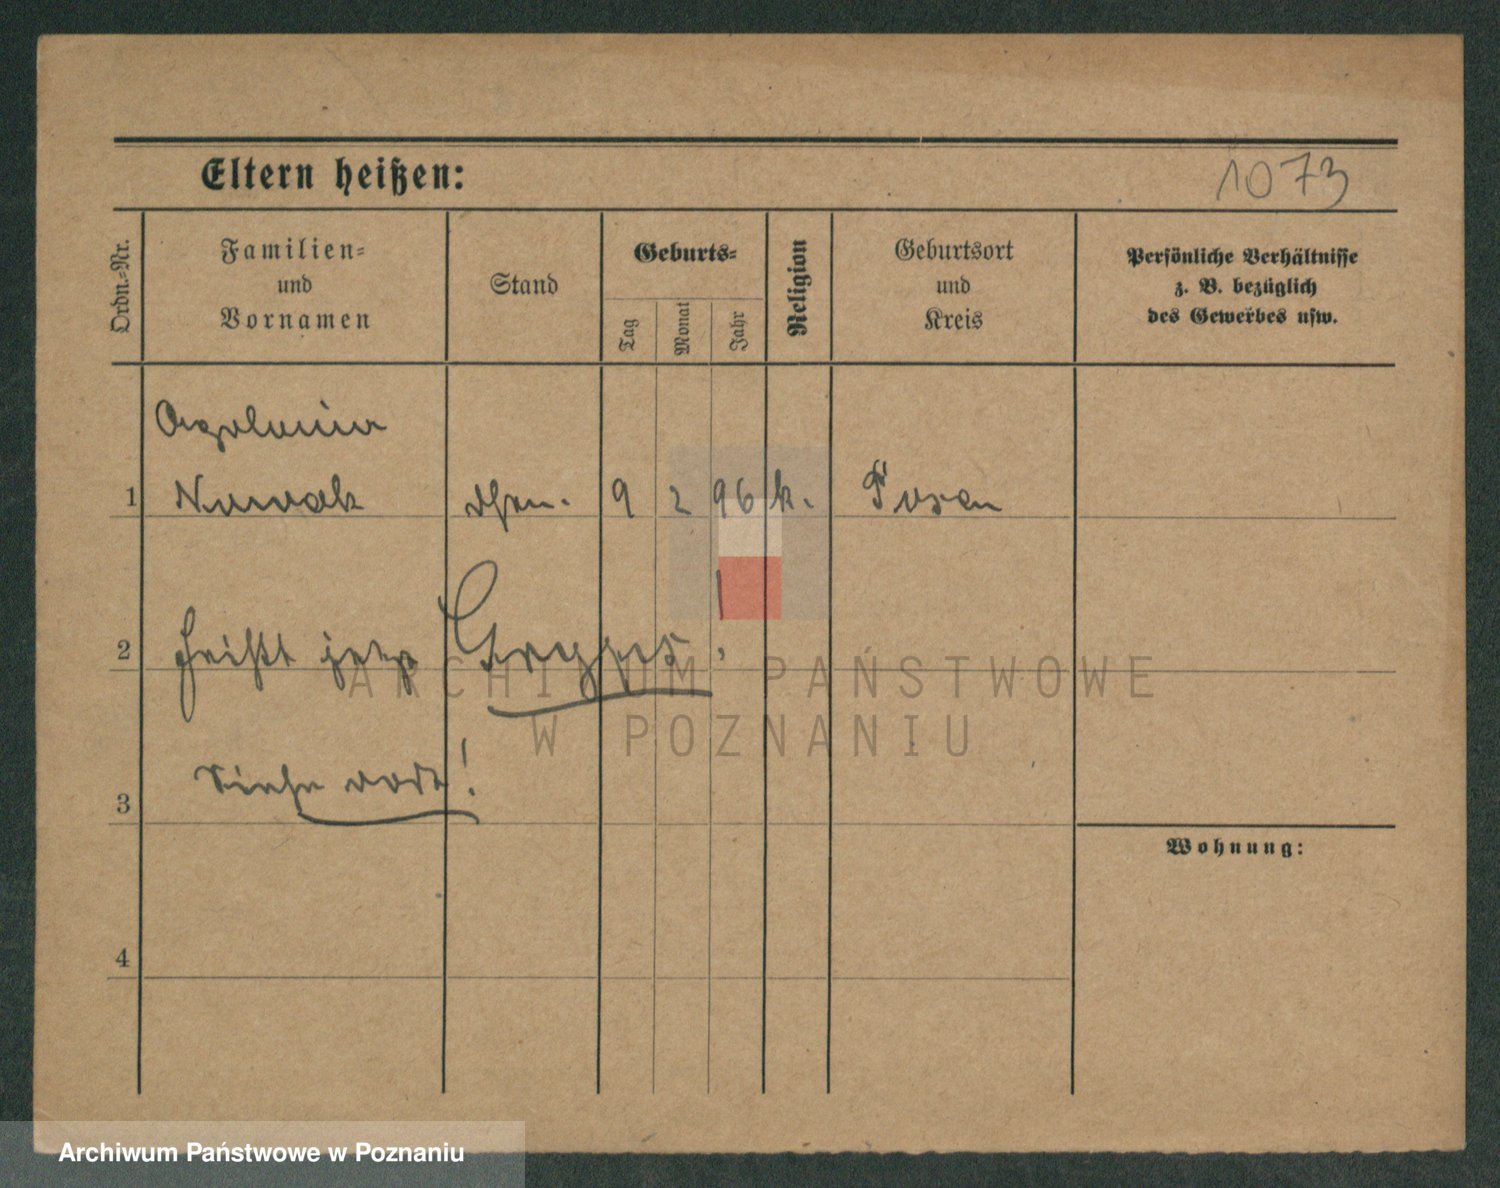 Eltern heißen:
1073
Ordn.-Nr.
Familien-
und
Vornamen
Stand
Geburts-
Tag
Monat
Jahr
Religion
Geburtsort
und
Kreis
Persönliche Verhältnisse
z. B. bezüglich
des Gewerbes usw.
Apolonia
1 Nowak 9 2 96 k. Posen
2 heißt jetzt
3 Siehe dort!
4
Wohnung:
ARCHIWUM PAŃSTWOWE
W POZNANIU
Archiwum Państwowe w Poznaniu